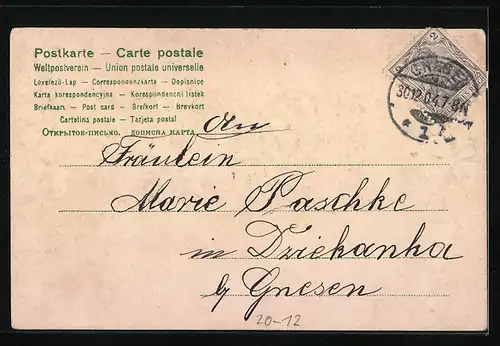 Postkarte — Carte postale
Weltpostverein — Union postale universelle
Levelező-Lap — Correspondenzkarte — Dopisnice
Karta korespondencyjna — Korespondencni listek
Briefkaart — Post card — Brefkort — Brevkort
Cartolina postale — Tarjeta postal
Открытое-письмо. дописна карта.
2
GNESEN
30.12.04.7-8N.
* 1 *
An
Fräulein
Marie Paschke
in Dziekanka
b/ Gnesen
20-12